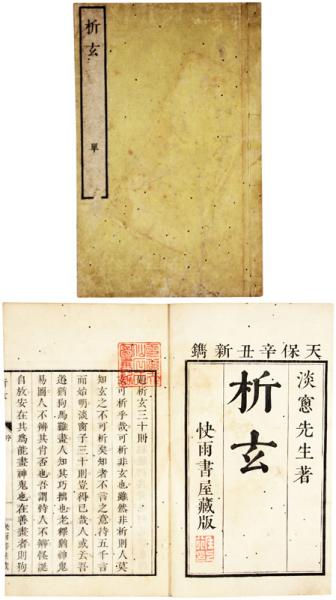 析玄
單
天保辛丑新鐫
淡窻先生著
析玄
快雨書屋藏版
析玄三十則
玄可析乎哉可析非玄也雖然非析則人莫
知玄之不可析矣知者不言之意待五千言
而始明淡窗子三十則豈得已哉人或云吾
道猶狗馬難畫人知其巧拙也老釋猶神鬼
易圖人不辨其肖否也吾謂特人不辨怪誕
自放安在其爲能畫神鬼也在善畫者則狗
析玄
序